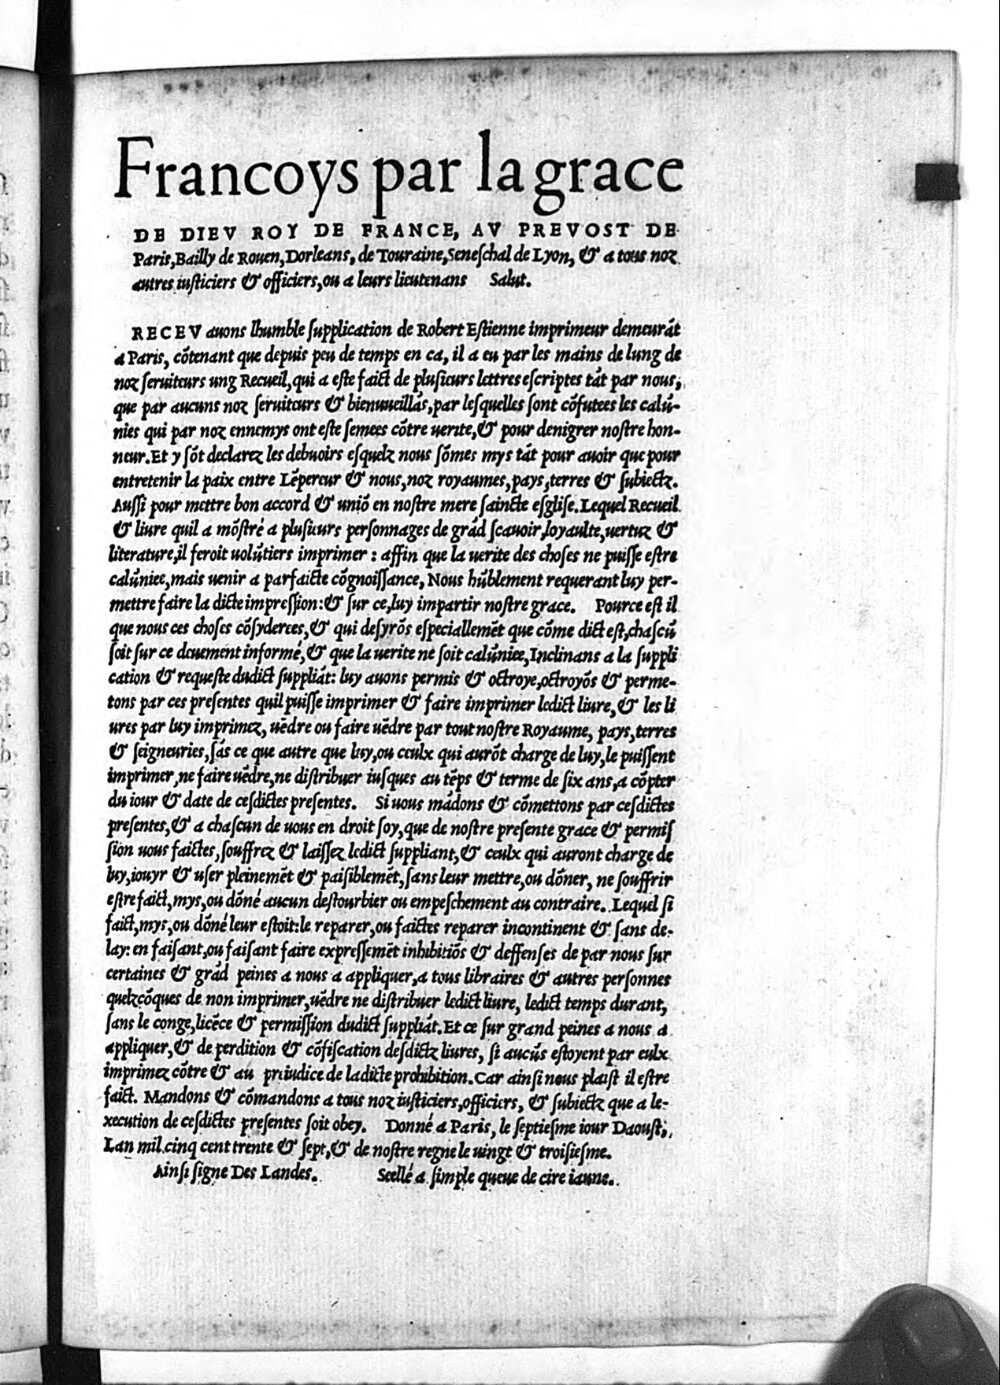 Francoys par la grace
DE DIEV ROY DE FRANCE, AV PREVOST DE
Paris, Bailly de Rouen, Dorleans, de Touraine, Seneſchal de Lyon, & a tous noz
autres iuſticiers & officiers, ou a leurs lieutenans Salut.
RECEV auons lhumble ſupplication de Robert Eſtienne imprimeur demeurãt
a Paris, cõtenant que depuis peu de temps en ca, il a eu par les mains de lung de
noz ſeruiteurs ung Recueil, qui a eſte faict de pluſieurs lettres eſcriptes tãt par nous,
que par aucuns noz ſeruiteurs & bienuueillãs, par leſquelles ſont cõfutees les calũ-
nies qui par noz ennemys ont eſte ſemees cõtre uerite, & pour denigrer noſtre hon-
neur. Et y ſõt declarez les debuoirs eſquelz nous ſõmes mys tãt pour auoir que pour
entretenir la paix entre Lẽpereur & nous, noz royaumes, pays, terres & ſubiectz.
Auſſi pour mettre bon accord & uniõ en noſtre mere ſaincte eſgliſe. Lequel Recueil
& liure quil a mõſtré a pluſieurs perſonnages de grãd ſcauoir, loyaulte, uertuz &
literature, il feroit uolũtiers imprimer : affin que la uerite des choſes ne puiſſe eſtre
calũniee, mais uenir a parfaicte cõgnoiſſance, Nous hũblement requerant luy per-
mettre faire la dicte impreſſion: & ſur ce, luy impartir noſtre grace. Pource eſt il
que nous ces choſes cõſyderees, & qui deſyrõs eſpeciallemẽt que cõme dict eſt, chaſcũ
ſoit ſur ce deuement informé, & que la uerite ne ſoit calũniee, Inclinans a la ſuppli
cation & requeſte dudict ſuppliãt: luy auons permis & octroye, octroyõs & perme-
tons par ces preſentes quil puiſſe imprimer & faire imprimer ledict liure, & les li
ures par luy imprimez, uẽdre ou faire uẽdre par tout noſtre Royaume, pays, terres
& ſeigneuries, ſãs ce que autre que luy, ou ceulx qui aurõt charge de luy, le puiſſent
imprimer, ne faire uẽdre, ne diſtribuer iuſques au tẽps & terme de ſix ans, a cõpter
du iour & date de ceſdictes preſentes. Si uous mãdons & cõmettons par ceſdictes
preſentes, & a chaſcun de uous en droit ſoy, que de noſtre preſente grace & permiſ
ſion uous faictes, ſouffrez & laiſſez ledict ſuppliant, & ceulx qui auront charge de
luy, iouyr & uſer pleinemẽt & paiſiblemẽt, ſans leur mettre, ou dõner, ne ſouffrir
eſtre faict, mys, ou dõné aucun deſtourbier ou empeſchement au contraire. Lequel ſi
faict, mys, ou dõné leur eſtoit: le reparer, ou faictes reparer incontinent & ſans de-
lay: en faiſant, ou faiſant faire expreſſemẽt inhibitiõs & deffenſes de par nous ſur
certaines & grãd peines a nous a appliquer, a tous libraires & autres perſonnes
quelzcõques de non imprimer, uẽdre ne diſtribuer ledict liure, ledict temps durant,
ſans le conge, licẽce & permiſſion dudict ſuppliãt. Et ce ſur grand peines a nous a
appliquer, & de perdition & cõfiſcation deſdictz liures, ſi aucũs eſtoyent par eulx
imprimez cõtre & au preiudice de ladicte prohibition. Car ainſi nous plaiſt il eſtre
faict. Mandons & cõmandons a tous noz iuſticiers, officiers, & ſubiectz que a le-
xecution de ceſdictes preſentes ſoit obey. Donné a Paris, le ſeptieſme iour Daouſt,
Lan mil cinq cent trente & ſept, & de noſtre regne le uingt & troiſieſme.
Ainſi ſigne Des Landes. Scellé a ſimple queue de cire iaune.